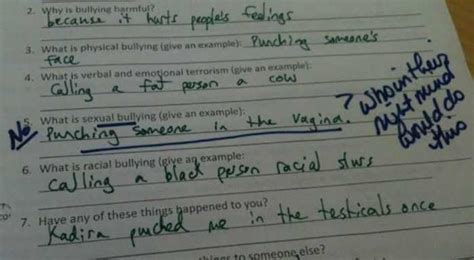 2. Why is bullying harmful?
because it hurts people's feelings
3. What is physical bullying (give an example): Punching someone's
face
4. What is verbal and emotional terrorism (give an example):
Calling a fat person a cow
5. What is sexual bullying (give an example):
No Punching someone in the vagina. ? who in their
right mind
would do
this
6. What is racial bullying (give an example:
calling a black person racial slurs
7. Have any of these things happened to you?
Kadira punched me in the testicals once
to someone else?